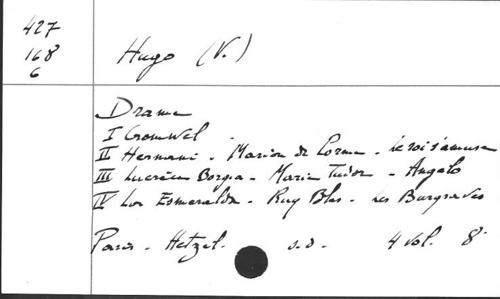 427
168
6
Hugo (V.)
Drame
I Cromwel.
II Hernani - Marion de Lorme - Le roi s'amuse
III Lucrèce Borgia - Marie Tudor - Angelo
IV La Esmeralda - Ruy Blas - Les Burgraves
Paris - Hetzel. s.d. 4 vol. 8°